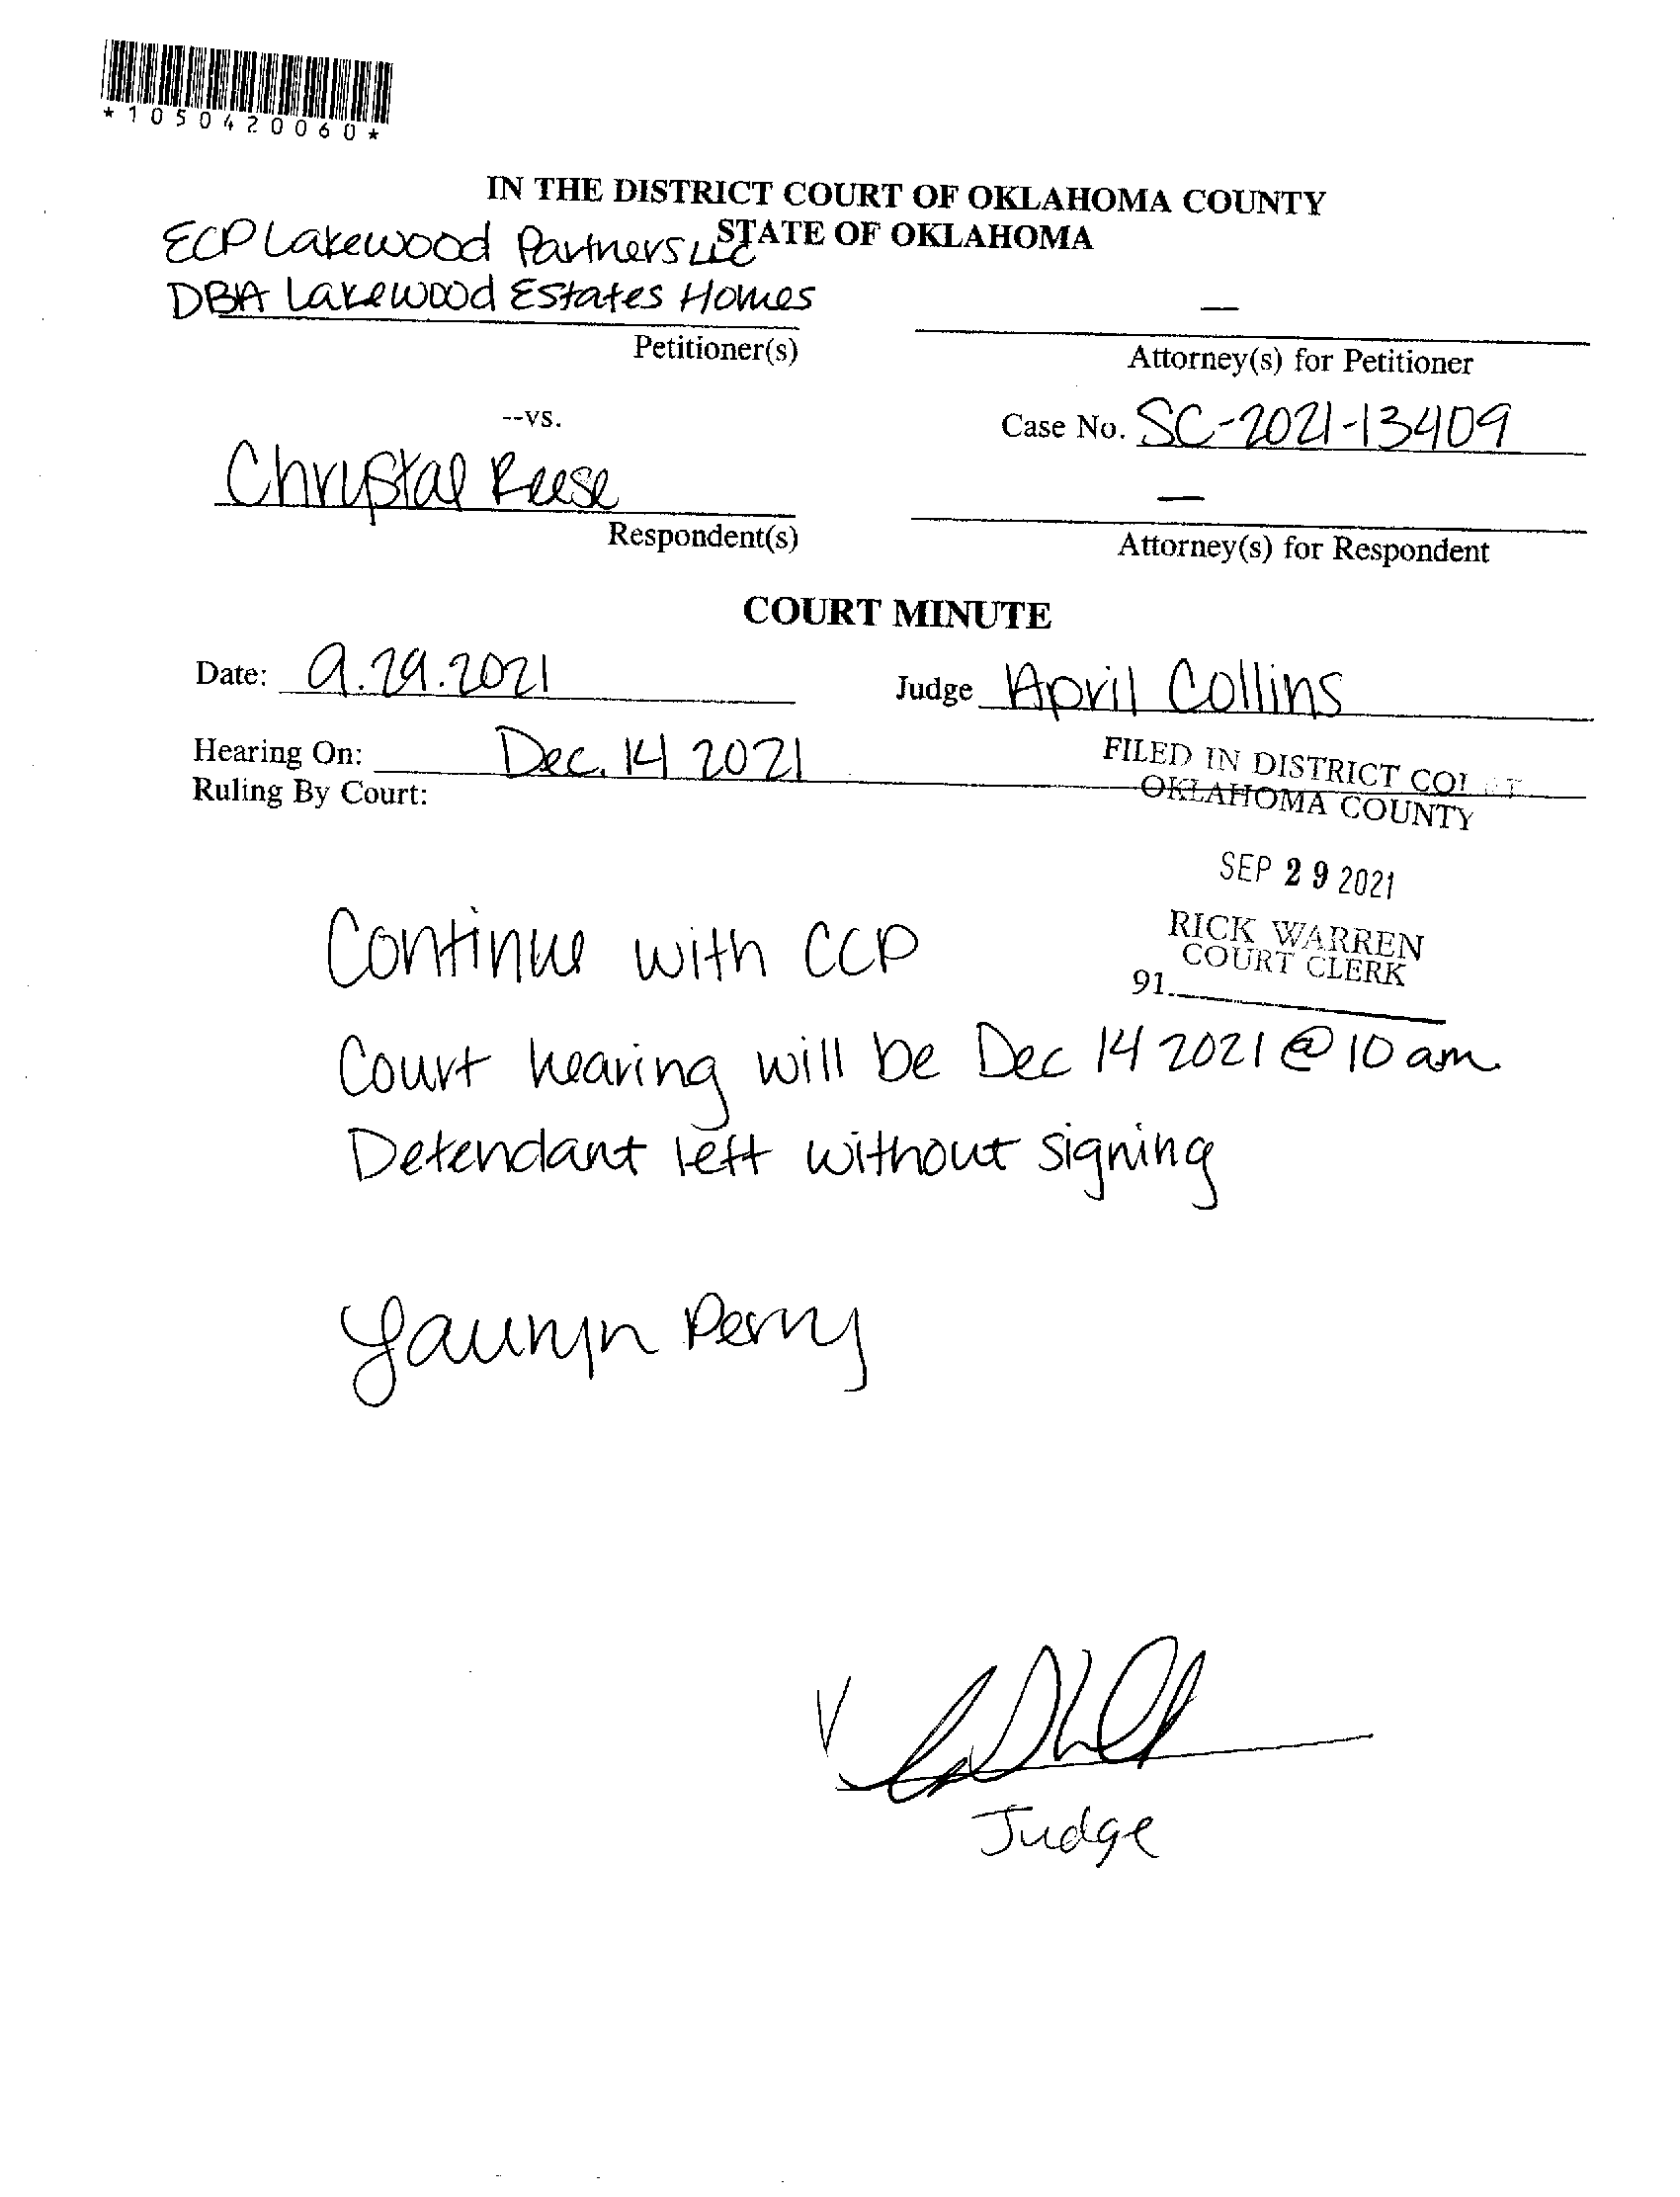 *1050420060*
IN THE DISTRICT COURT OF OKLAHOMA COUNTY
STATE OF OKLAHOMA
ECP Lakewood Partners LLC
DBA Lakewood Estates Homes
Petitioner(s)
Attorney(s) for Petitioner
--vs.
Case No. SC-2021-13409
Chrystal Reese
Respondent(s)
Attorney(s) for Respondent
COURT MINUTE
Date: 9.29.2021
Judge April Collins
Hearing On: Dec. 14 2021
Ruling By Court:
FILED IN DISTRICT COURT
OKLAHOMA COUNTY
SEP 29 2021
RICK WARREN
COURT CLERK
91
Continue with CCP
Court hearing will be Dec 14 2021 @ 10 am.
Defendant left without signing
Lauryn Perry
Judge